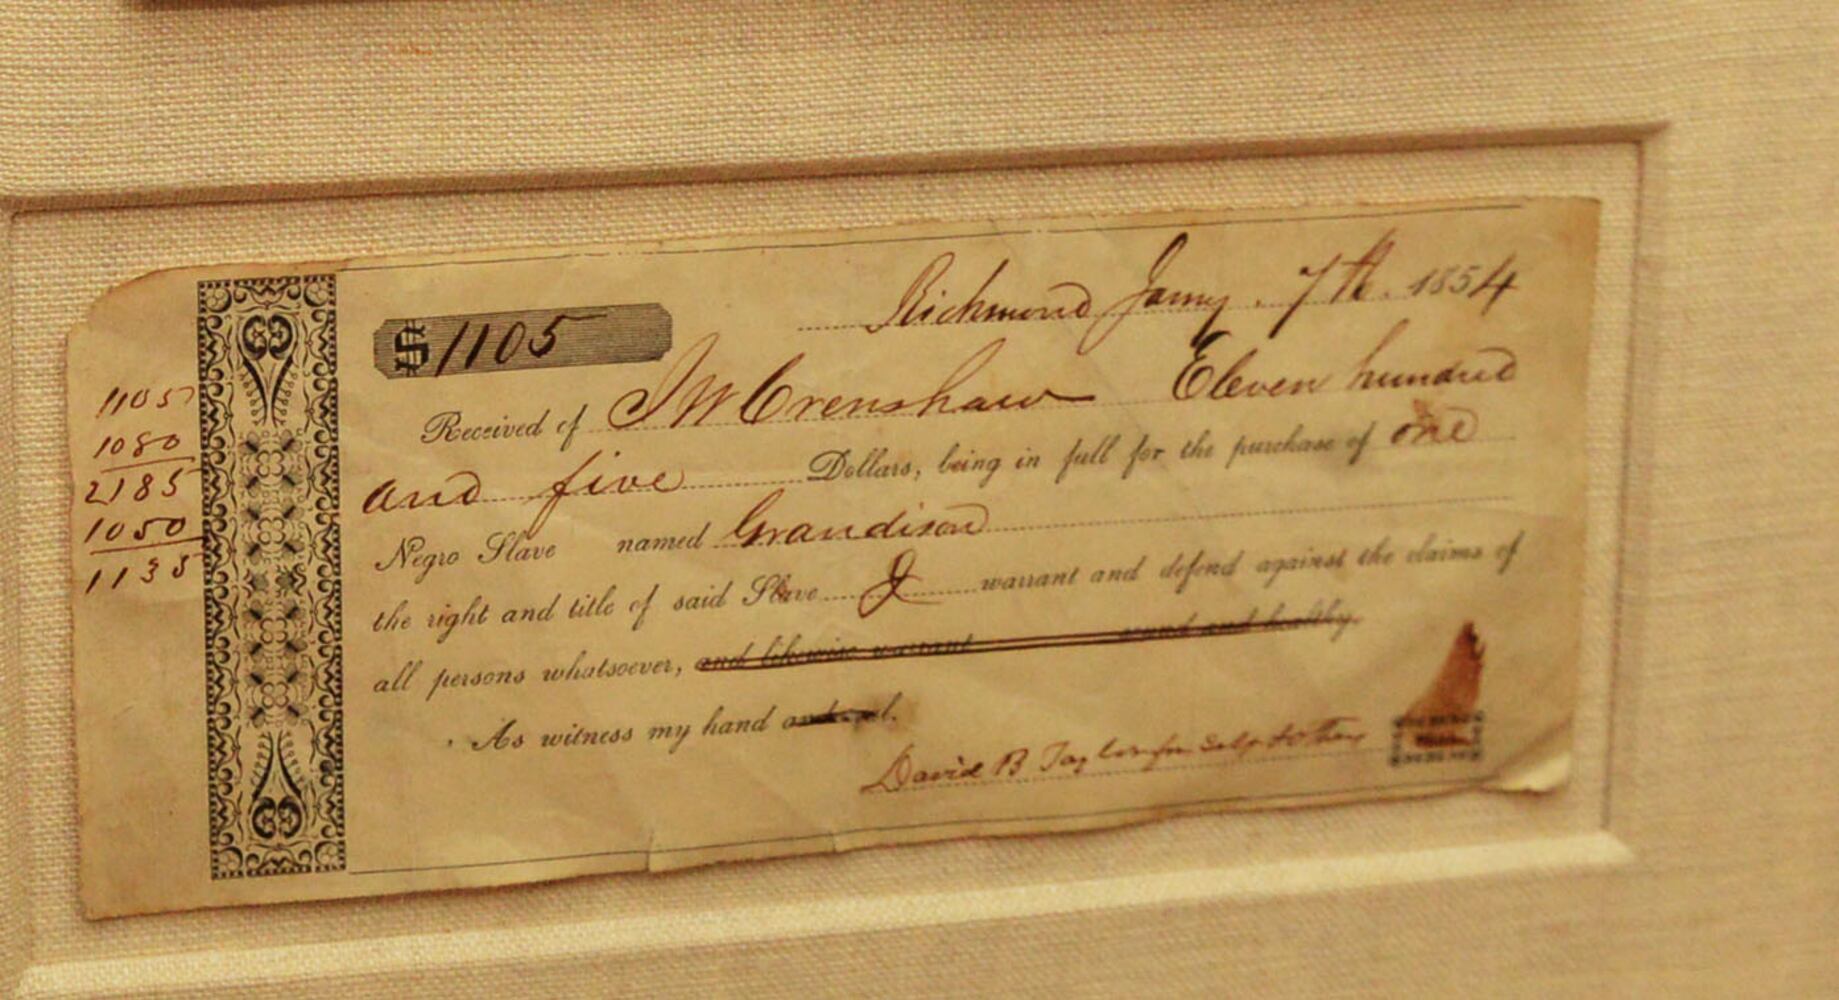 Richmond Jany. 7th. 1854
$1105
Received of J W Crenshaw Eleven hundred
and five Dollars, being in full for the purchase of one
Negro Slave named Grandison
the right and title of said Slave I warrant and defend against the claims of
all persons whatsoever, and likewise warrant sound and healthy.
As witness my hand and seal.
David B Taylor for Self &
1105
1080
2185
1050
1135